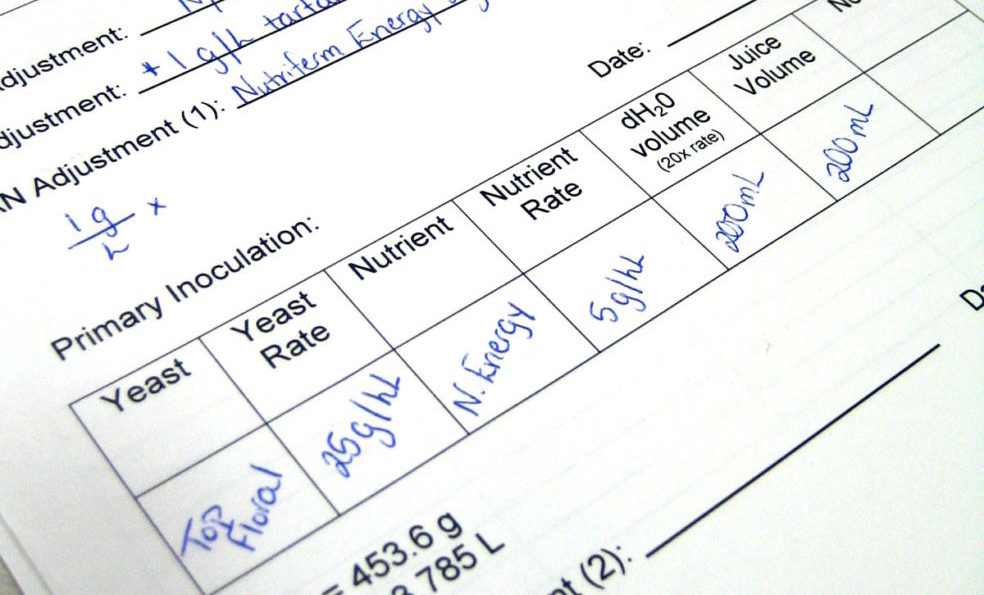 djustment:
djustment: + 1 g/L
N Adjustment (1): Nutriferm Energy
1 g x
L
Date:
Primary Inoculation:
Yeast
Yeast Rate
Nutrient
Nutrient Rate
dH20 volume (20x rate)
Juice Volume
Top Floral
25g/hL
N. Energy
5g/hL
200mL
200mL
= 453.6 g
785 L
t (2):